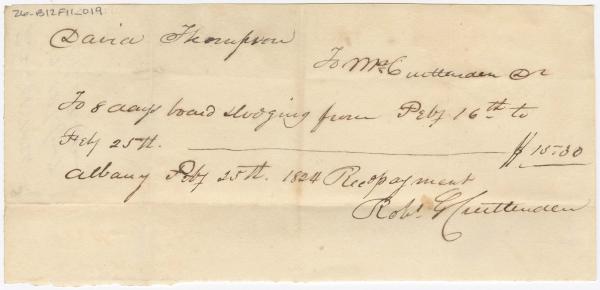 26-B12F11-019
David Thompson
To Wm Cruttenden Dr
To 8 days board & lodging from Feby 16th to
Feby 25th. $15.50
Albany Feby 25th. 1824 Recd payment
Robt G Cruttenden